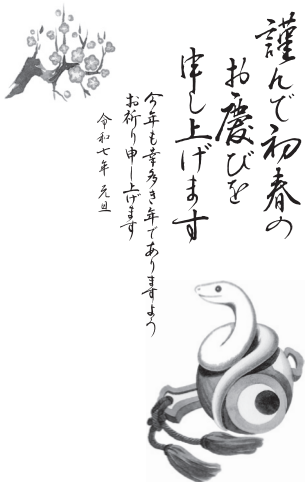 謹んで初春の
お慶びを
申し上げます
今年も幸多き年でありますよう
お祈り申し上げます
令和七年 元旦